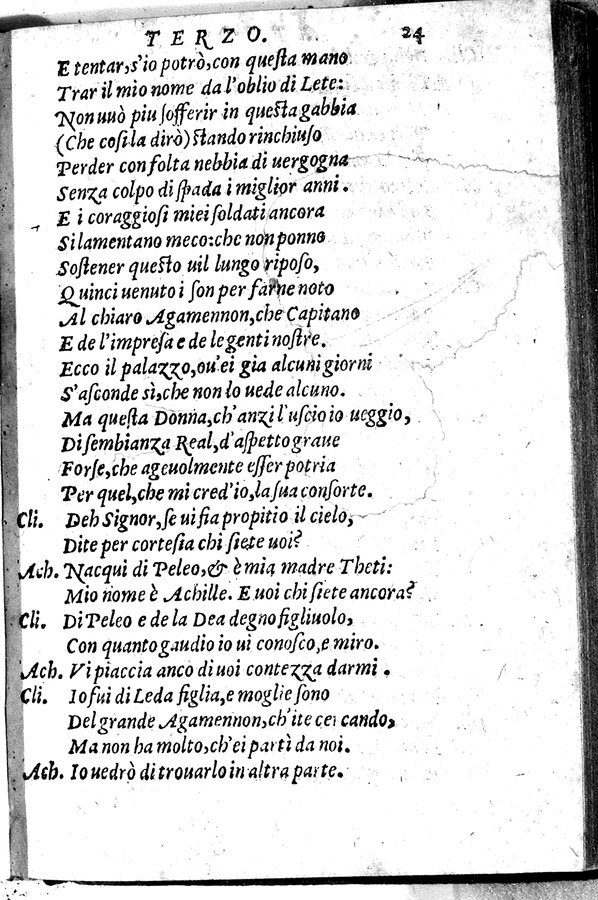 TERZO. 24
E tentar, s'io potrò, con queſta mano
Trar il mio nome da l'oblio di Lete:
Non uuò piu ſofferir in queſta gabbia
(Che coſi la dirò) ſtando rinchiuſo
Perder con folta nebbia di uergogna
Senza colpo di ſpada i miglior anni.
E i coraggioſi miei ſoldati ancora
Si lamentano meco: che non ponno
Soſtener queſto uil lungo ripoſo,
Quinci uenuto i ſon per farne noto
Al chiaro Agamennon, che Capitano
E de l'impreſa e de le genti noſtre.
Ecco il palazzo, ou'ei gia alcuni giorni
S'aſconde sì, che non lo uede alcuno.
Ma queſta Donna, ch'anzi l'uſcio io ueggio,
Di ſembianza Real, d'aſpetto graue
Forſe, che ageuolmente eſſer potria
Per quel, che mi cred'io, la ſua conſorte.
Cli. Deh Signor, ſe ui ſia propitio il cielo,
Dite per corteſia chi ſiete uoi?
Ach. Nacqui di Peleo, & è mia madre Theti:
Mio nome è Achille. E uoi chi ſiete ancora?
Cli. Di Peleo e de la Dea degno figliuolo,
Con quanto gaudio io ui conoſco, e miro.
Ach. Vi piaccia anco di uoi contezza darmi.
Cli. Io fui di Leda figlia, e moglie ſono
Del grande Agamennon, ch'ite cercando,
Ma non ha molto, ch'ei partì da noi.
Ach. Io uedrò di trouarlo in altra parte.